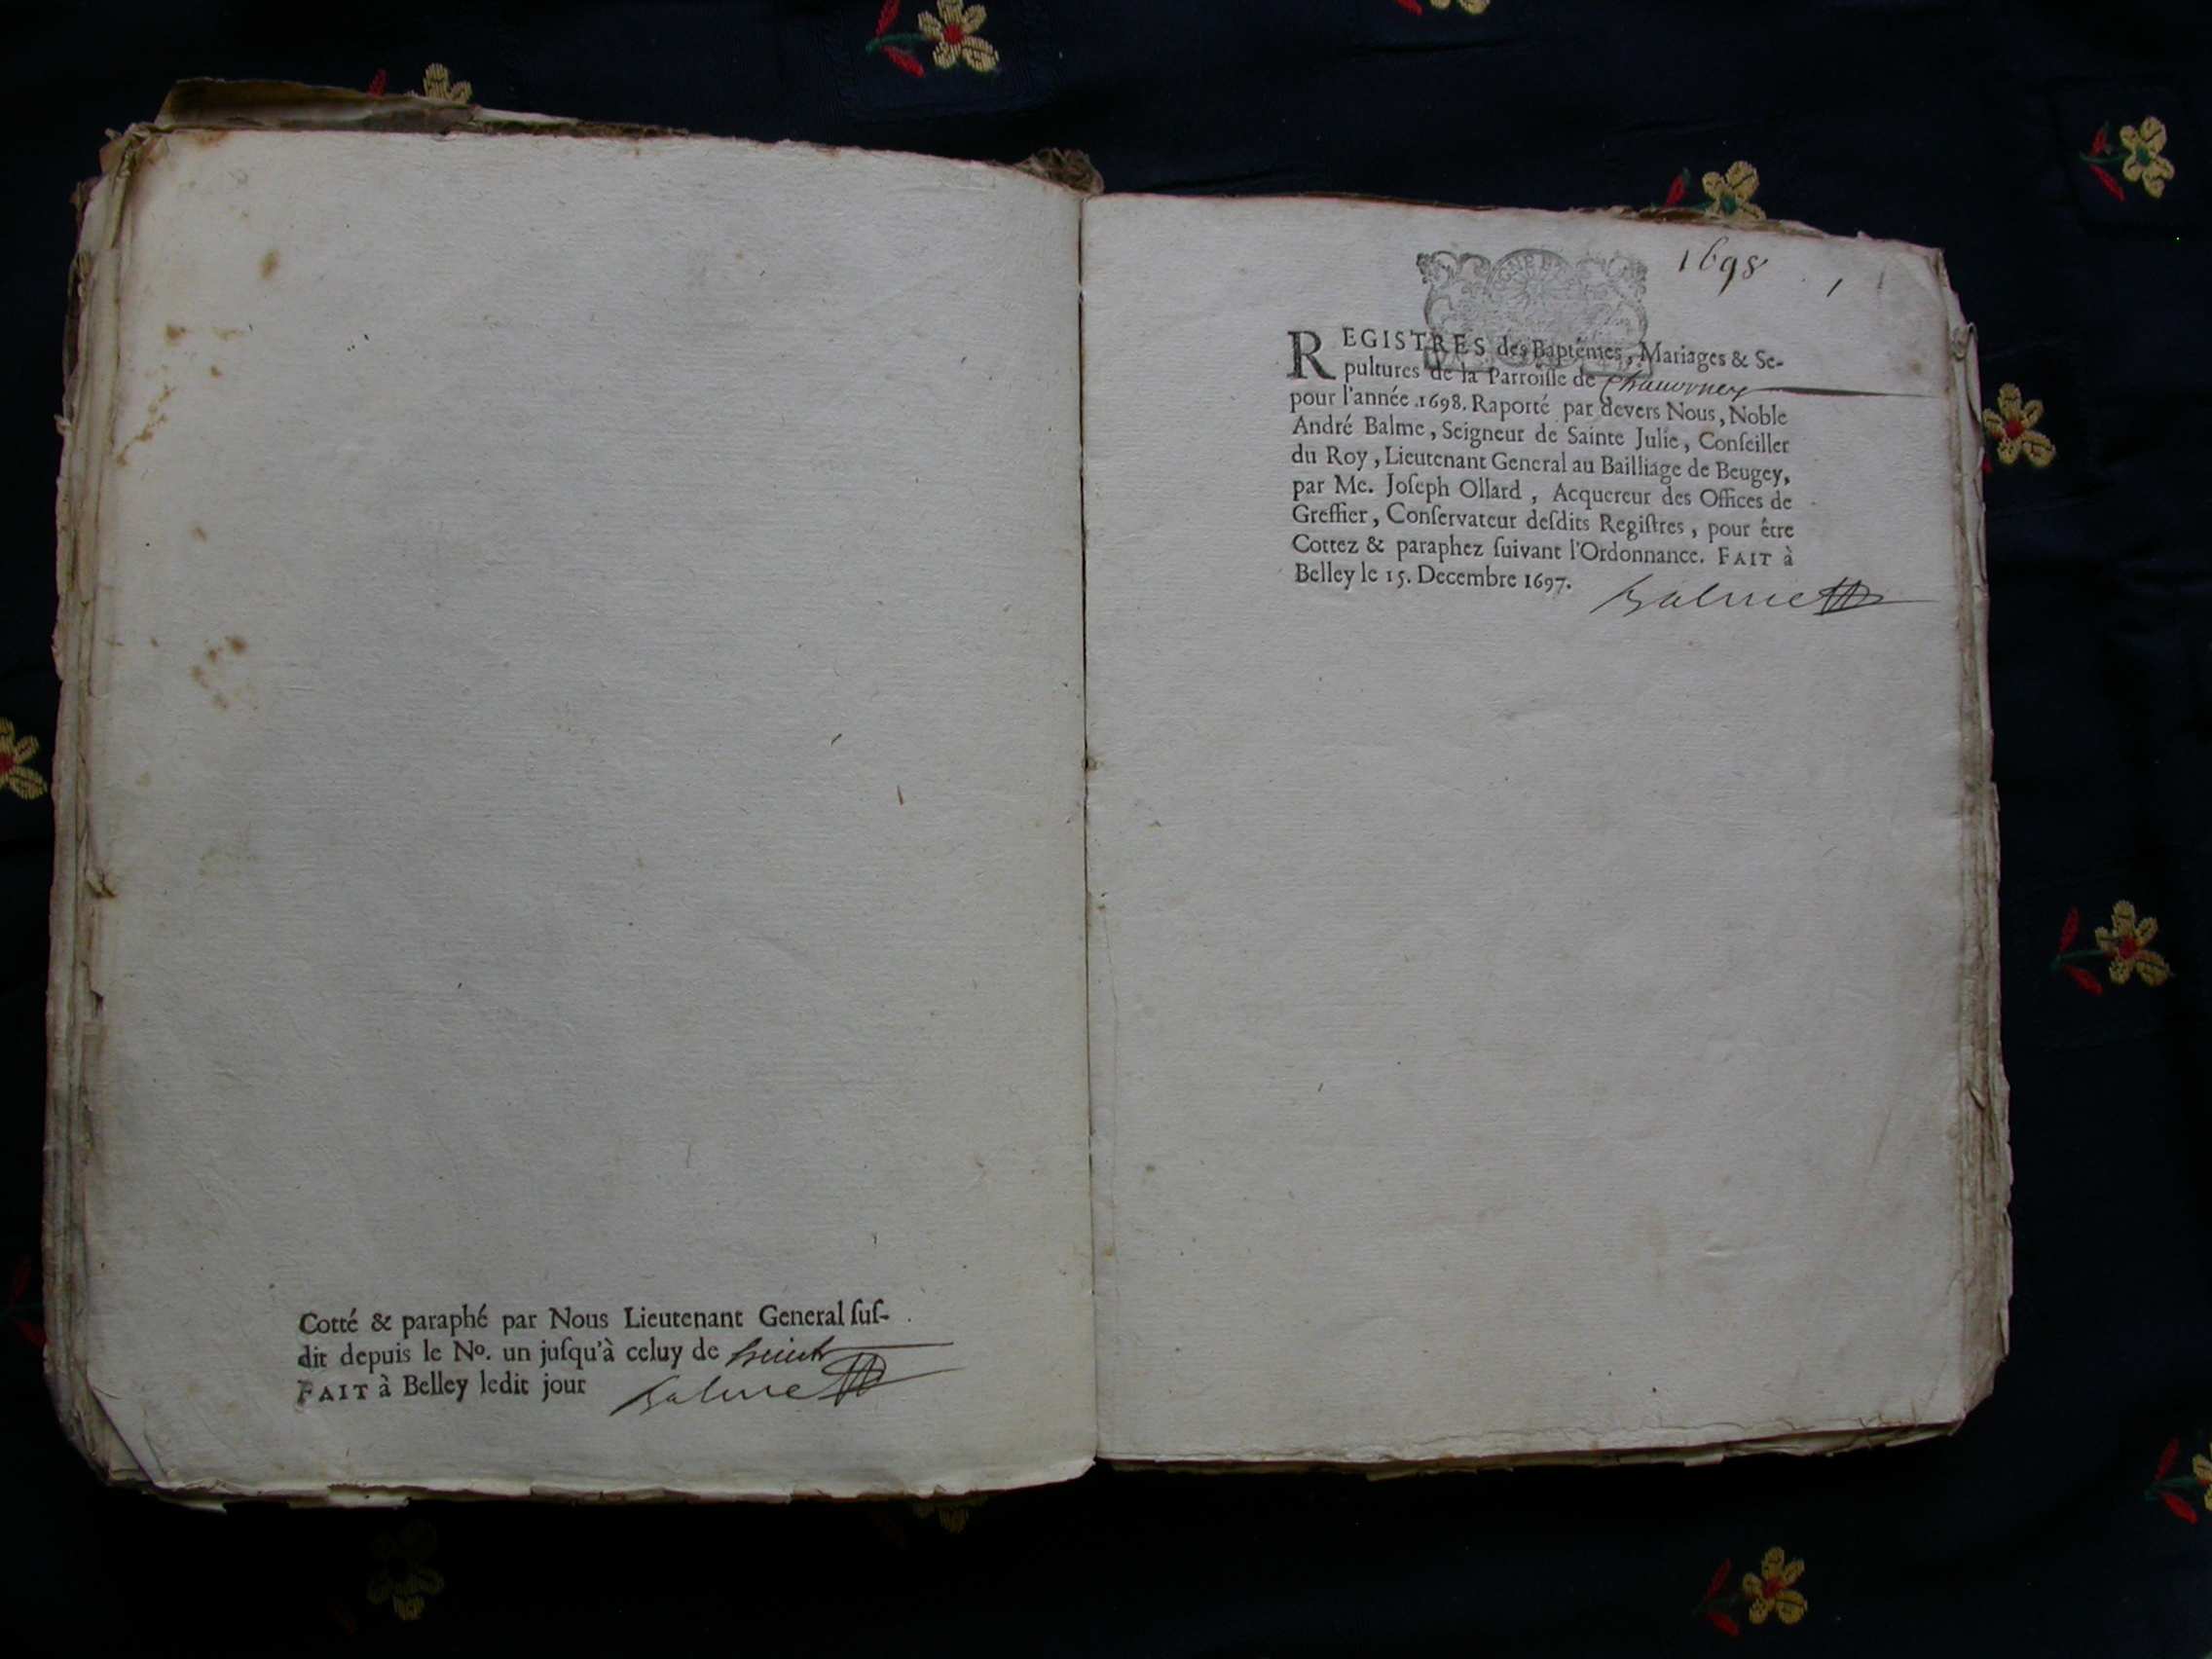 Cotté & paraphé par Nous Lieutenant General ſuſ-
dit depuis le Nº. un juſqu'à celuy de huict
FAIT à Belley ledit jour Balme
1698 1
REGISTRES des Baptêmes, Mariages & Se-
pultures de la Parroiſſe de Chavornay
pour l'année 1698. Raporté par devers Nous, Noble
André Balme, Seigneur de Sainte Julie, Conſeiller
du Roy, Lieutenant General au Bailliage de Beugey,
par Me. Joſeph Ollard, Acquereur des Offices de
Greffier, Conſervateur deſdits Regiſtres, pour être
Cottez & paraphez ſuivant l'Ordonnance. FAIT à
Belley le 15. Decembre 1697.
Balme